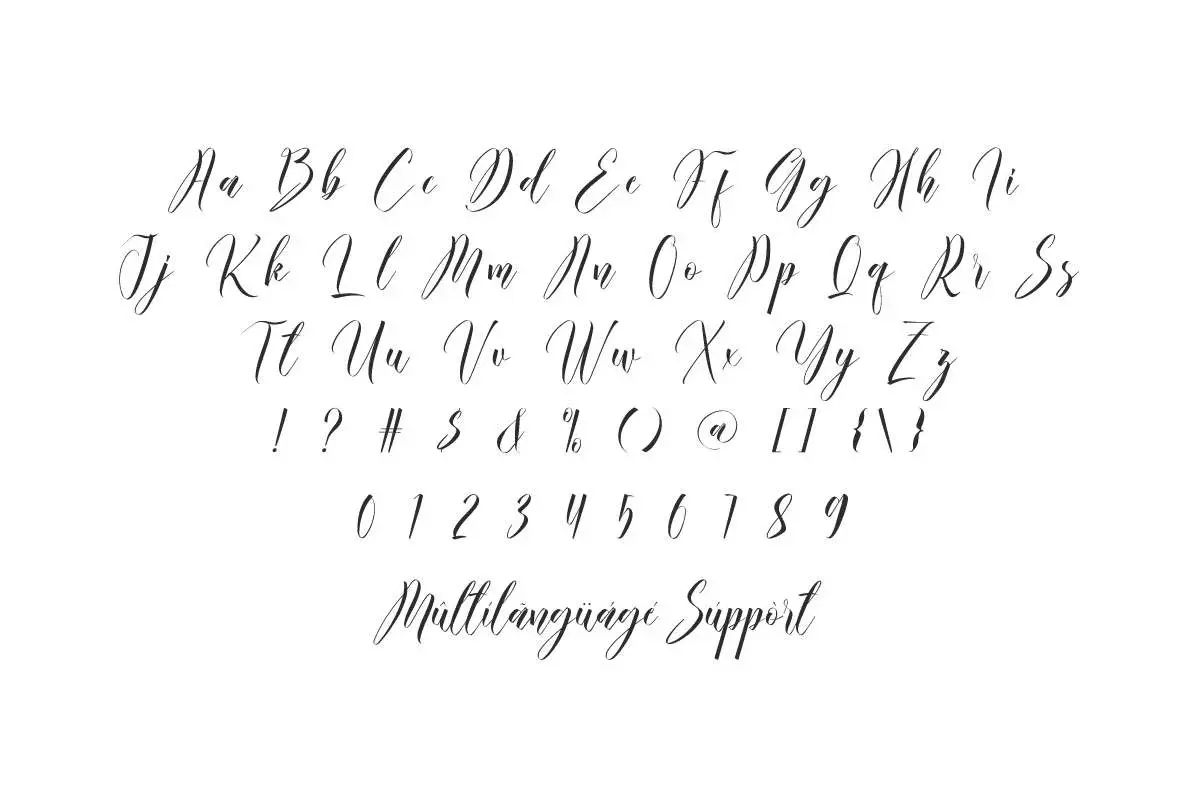 Aa Bb Cc Dd Ee Ff Gg Hh Ii
Jj Kk Ll Mm Nn Oo Pp Qq Rr Ss
Tt Uu Vv Ww Xx Yy Zz
! ? # $ & % ( ) @ [ ] { \ }
0 1 2 3 4 5 6 7 8 9
Mûltílãngüágé Súppòrt